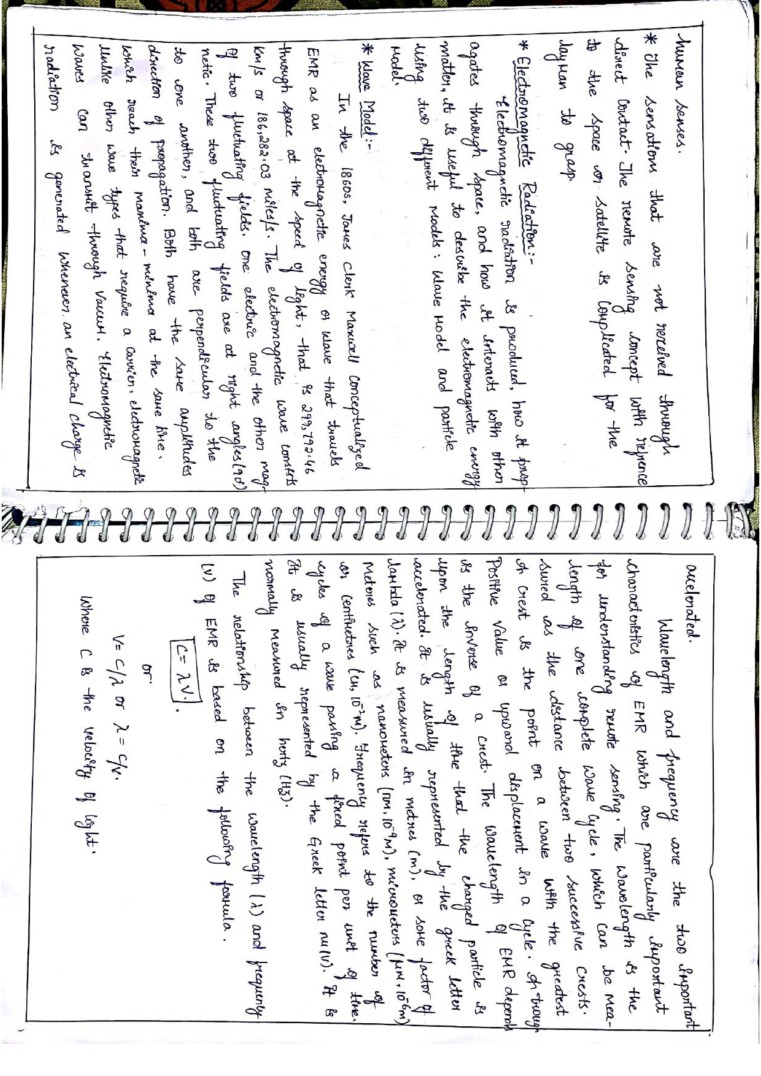 human senses.
* The sensations that are not received through
direct Contact. The remote sensing concept with refrence
to the space or satellite is Complicated for the
layman to grasp.
* Electromagnetic Radiation:-
Electromagnetic radiation is produced, how it prop-
agates through space, and how it interacts with other
matter, it is useful to describe the electromagnetic energy
using two different Models: Wave Model and particle
Model.
* Wave Model:-
In the 1860s, James Clerk Maxwell Conceptualized
EMR as an electromagnetic energy or wave that travels
through space at the speed of light, that is 299,792.46
Km/s or 186,282.03 miles/s. The electromagnetic wave consists
of two fluctuating fields. one electric and the other mag-
netic. These two fluctuating fields are at right angles (90)
to one another, and both are perpendicular to the
direction of propagation. Both have the same amplitudes
which reach their maxima - minima at the same time.
Unlike other wave types that require a carrier, electromagnetic
waves can transmit through vaccum. Electromagnetic
radiation is generated whenever an electrical charge is
accelerated.
Wavelength and frequency are the two important
characteristics of EMR which are particularly important
for understanding remote sensing. The wavelength is the
length of one complete wave cycle, which can be mea-
sured as the distance between two successive crests.
A crest is the point on a wave with the greatest
Positive value or upward displacement in a cycle. A trough
is the inverse of a crest. The wavelength of EMR depends
upon the length of time that the charged particle is
accelerated. It is usually represented by the greek letter
lambda (λ). It is measured in metres (m), or some factor of
Metres such as nanometers (nm, 10⁻⁹m), micrometers (μm, 10⁻⁶m)
or Centimetres (cm, 10⁻²m). Frequency refers to the number of
cycles of a wave passing a fixed point per unit of time.
It is usually represented by the Greek letter nu(v). It is
normally measured in hertz (Hz).
The relationship between the wavelength (λ) and frequency
(v) of EMR is based on the following formula.
C = λV.
or
V = C/λ or λ = C/v.
Where C is the velocity of light.